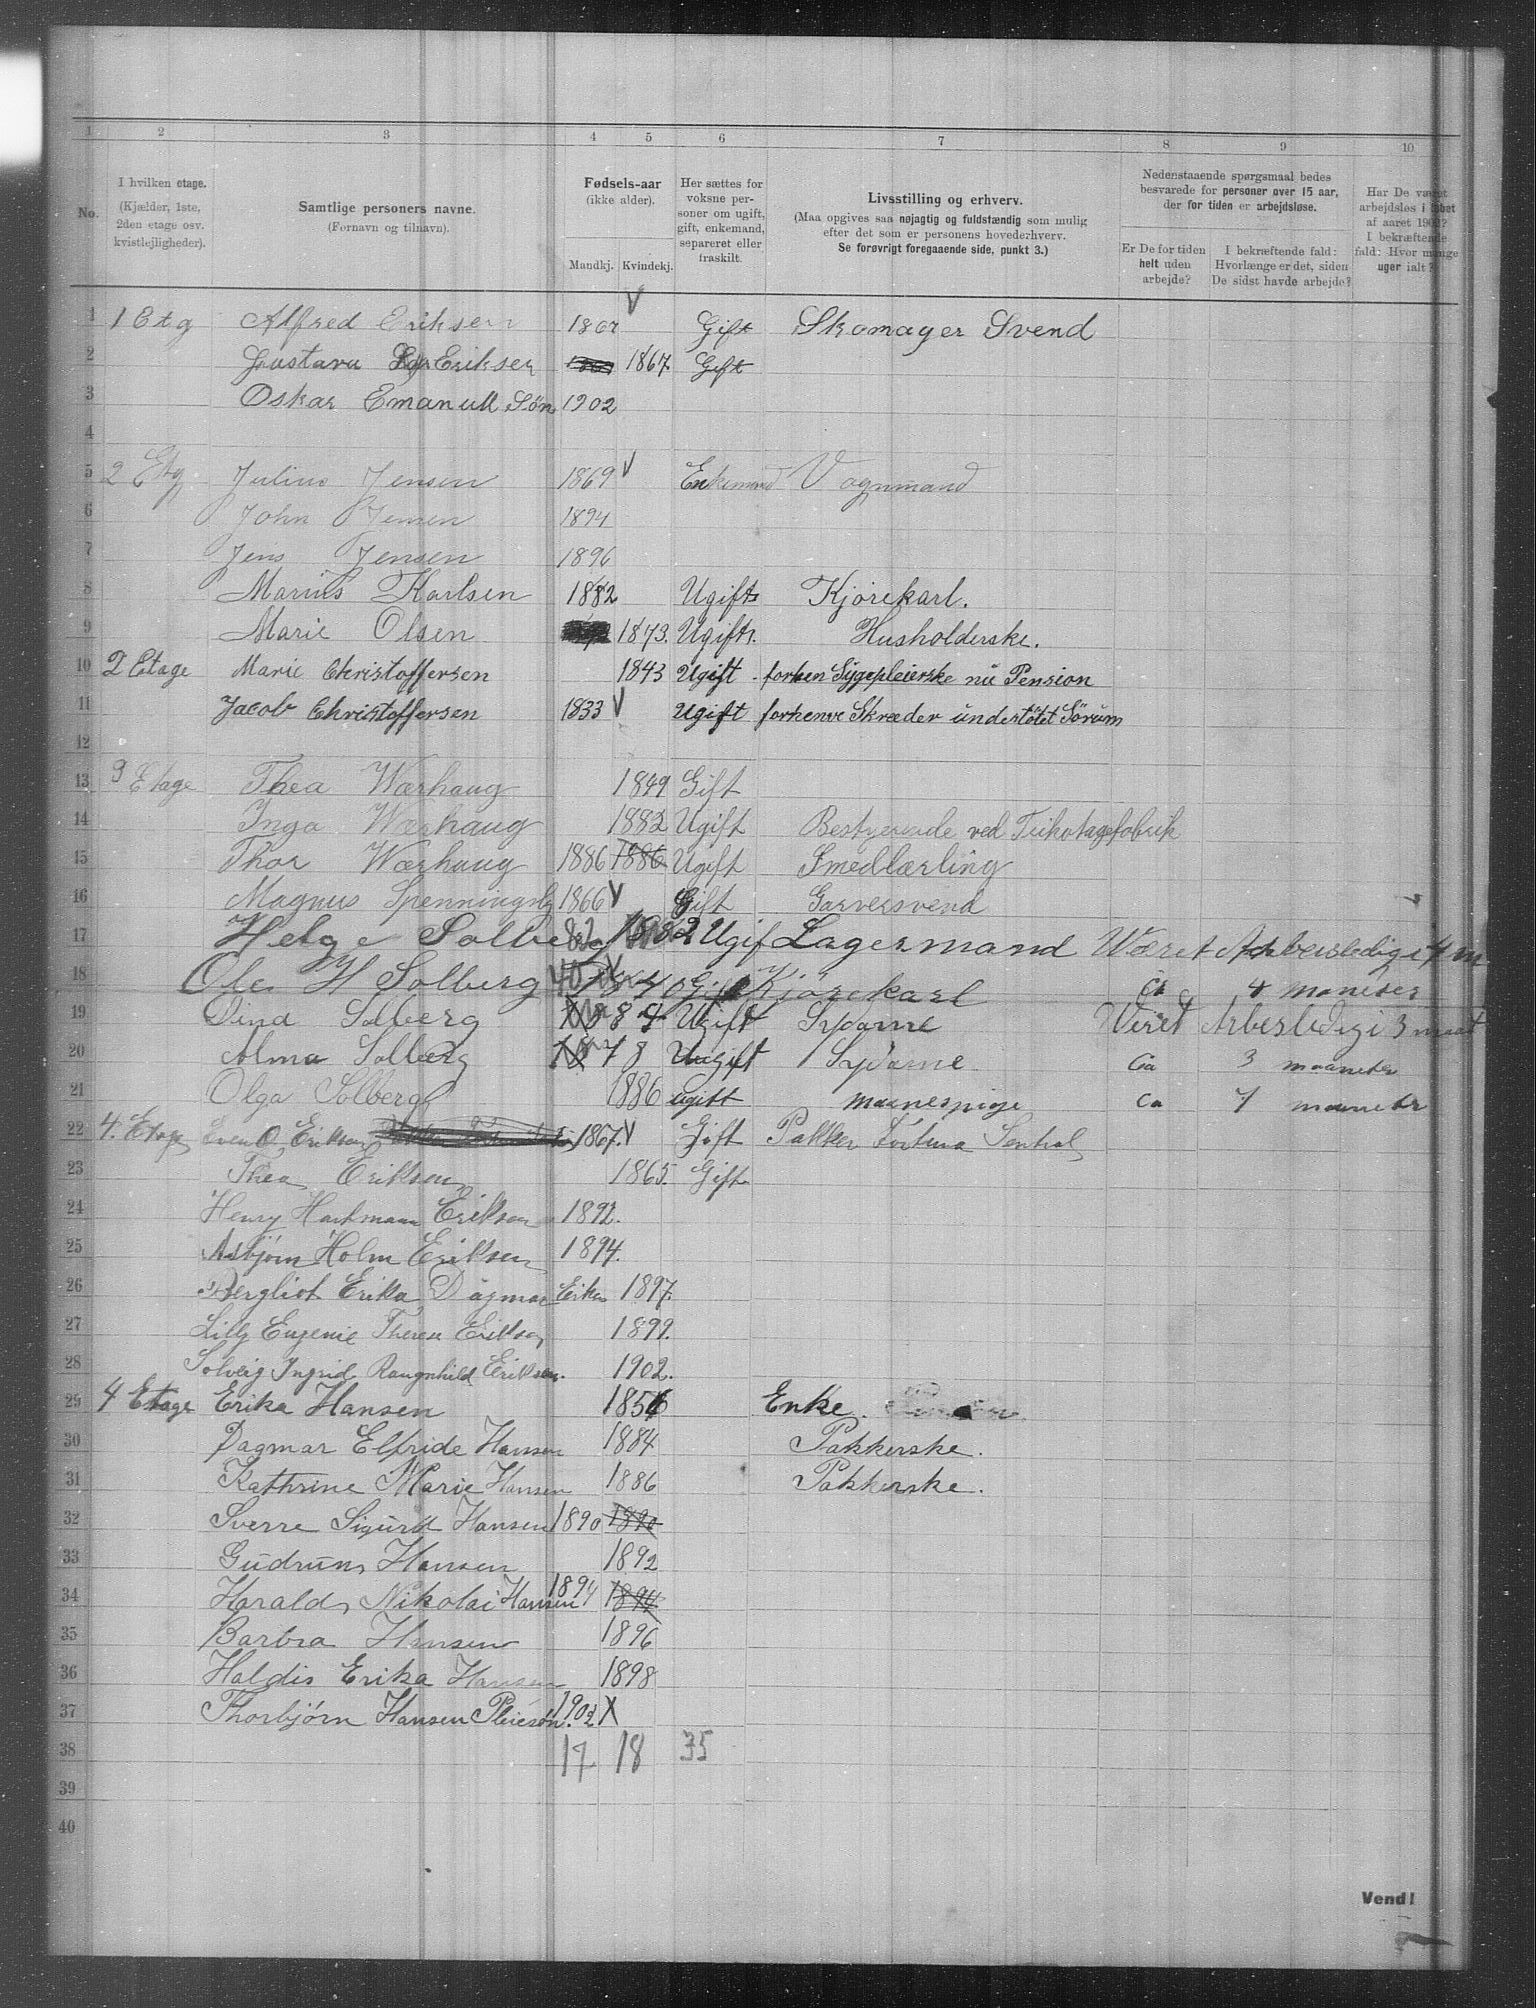 1 2 3 4 5 6 7 8 9 10
No. I hvilken etage. (Kjælder, 1ste, 2den etage osv. kvistlejligheder).
Samtlige personers navne. (Fornavn og tilnavn).
Fødsels-aar (ikke alder). Mandkj. Kvindekj.
Her sættes for voksne personer om ugift, gift, enkemand, separeret eller fraskilt.
Livsstilling og erhverv. (Maa opgives saa nøjagtig og fuldstændig som mulig efter det som er personens hovederhverv. Se forøvrigt foregaaende side, punkt 3.)
Nedenstaaende spørgsmaal bedes besvarede for personer over 15 aar, der for tiden er arbejdsløse.
Er De for tiden helt uden arbejde?
I bekræftende fald: Hvorlænge er det, siden De sidst havde arbejde?
Har De været arbejdsløs i løbet af aaret 1902? I bekræftende fald: Hvor mange uger ialt?
1 1 Etg Alfred Eriksen 1867 V Gift Skomager Svend
2 Gustava Eriksen 1867. Gift
3 Oskar Emanuell Søn 1902
4
5 2 Etg Julius Jensen 1869 V Enkemand Vognmand
6 John Jensen 1894
7 Jens Jensen 1896
8 Marius Karlsen 1882 Ugift Kjørekarl.
9 Marie Olsen 1873. Ugift. Husholderske.
10 2 Etage Marie Christoffersen 1843 Ugift forhen Sygepleierske nu Pension
11 Jacob Christoffersen 1833 V Ugift forhenve Skræder understøtet Sørum
12
13 3 Etage Thea Wærhaug 1849 Gift
14 Inga Wærhaug 1882 Ugift Bestyerende ved Trikotagefabrik
15 Thor Wærhaug 1886 1886 Ugift Smedlærling
16 Magnus Spenningsby 1866 V Gift Garversvend
17 Helge Solberg 82 1882 Ugif Lagermand Været Arbeisledig i 4 m
18 Ole H Solberg 40 1840 Gift Kjørekarl Ca 4 maaneter
19 Dina Solberg 87 Ugift Sydame Været Arbesledig i 3 maat
20 Alma Solberg 78 Ugift Sydame Ca 3 maaneter
21 Olga Solberg 1886 ugift Ca 7 maaneter
22 4. Etage Even O Eriksen 1867. V Gift Pakker Fortuna Sentral
23 Thea Eriksen 1865. Gift
24 Henry Hartmann Eriksen 1892.
25 Asbjørn Holm Eriksen 1894.
26 Bergliot Erika Dagmar Eriks 1897.
27 Lilly Eugenie Theresa Eriksen 1899.
28 Solveig Ingrid Raugnhild Eriksen. 1902.
29 4 Etage Erika Hansen 1856 Enke.
30 Dagmar Elfride Hansen 1884 Pakkerske.
31 Kathrine Marie Hansen 1886 Pakkerske.
32 Sverre Sigurd Hansen 1890 1890
33 Gudrun Hansen 1892
34 Harald Nikolai Hansen 1894 1894
35 Barbra Hansen 1896
36 Haldis Erika Hansen 1898
37 Thorbjørn Hansen Pleiesøn. 1902 X
38 17 18 35
39
40
Vend!